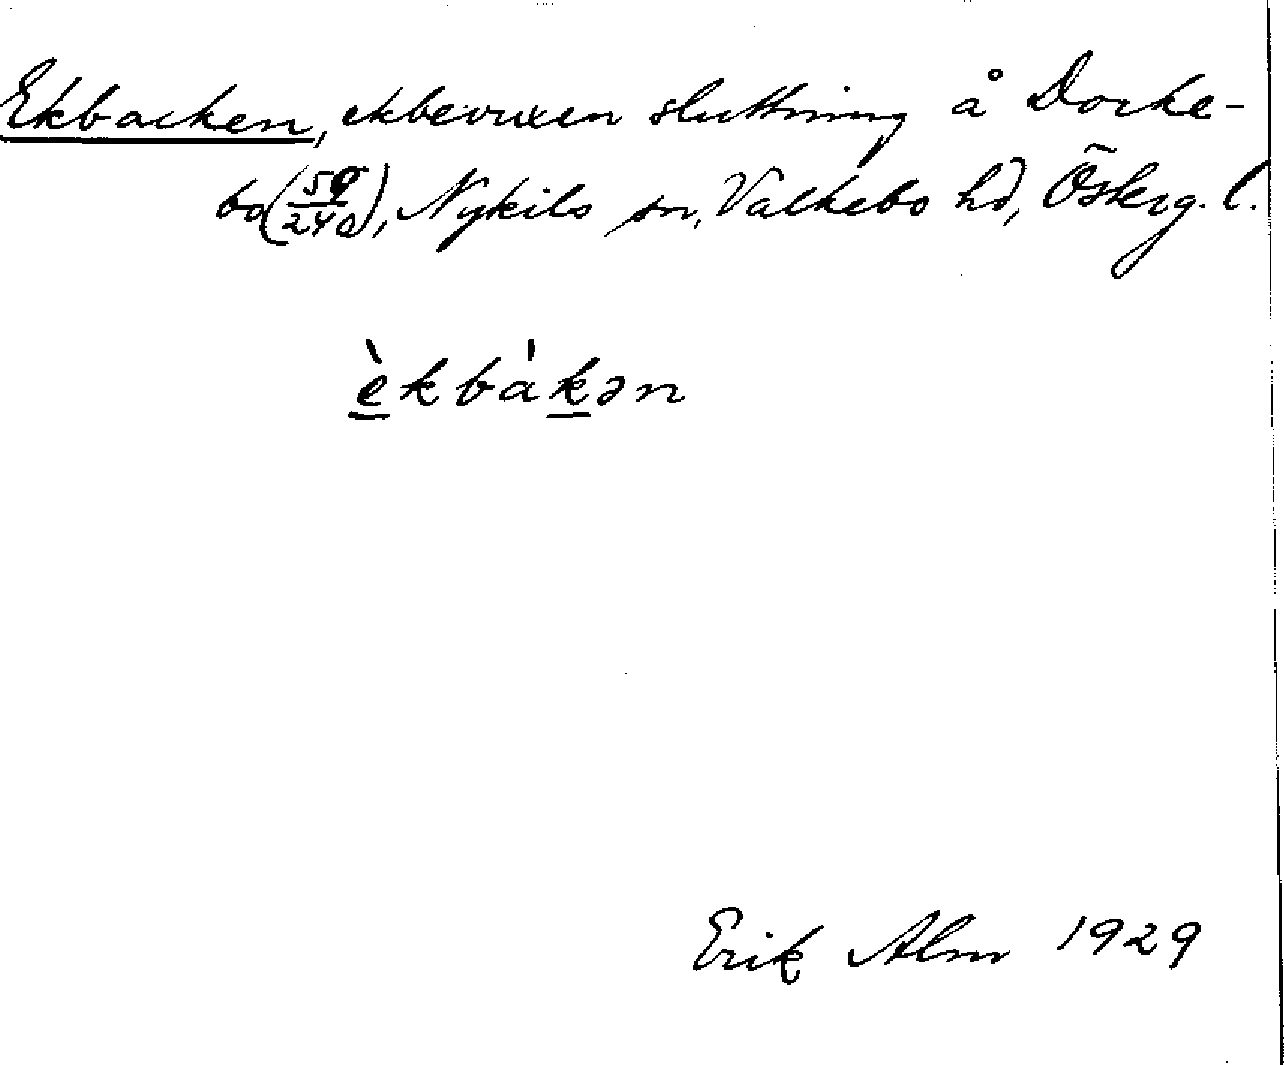 Ekbacken, ekbevuxen sluttning å Docke-
bo (59/240), Nykils sn, Valkebo hd, Österg. l.
èkbákən
Erik Alm 1929